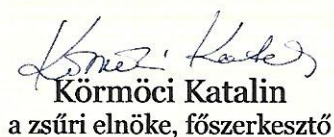 Körmöci Katalin
Körmöci Katalin
a zsűri elnöke, főszerkesztő